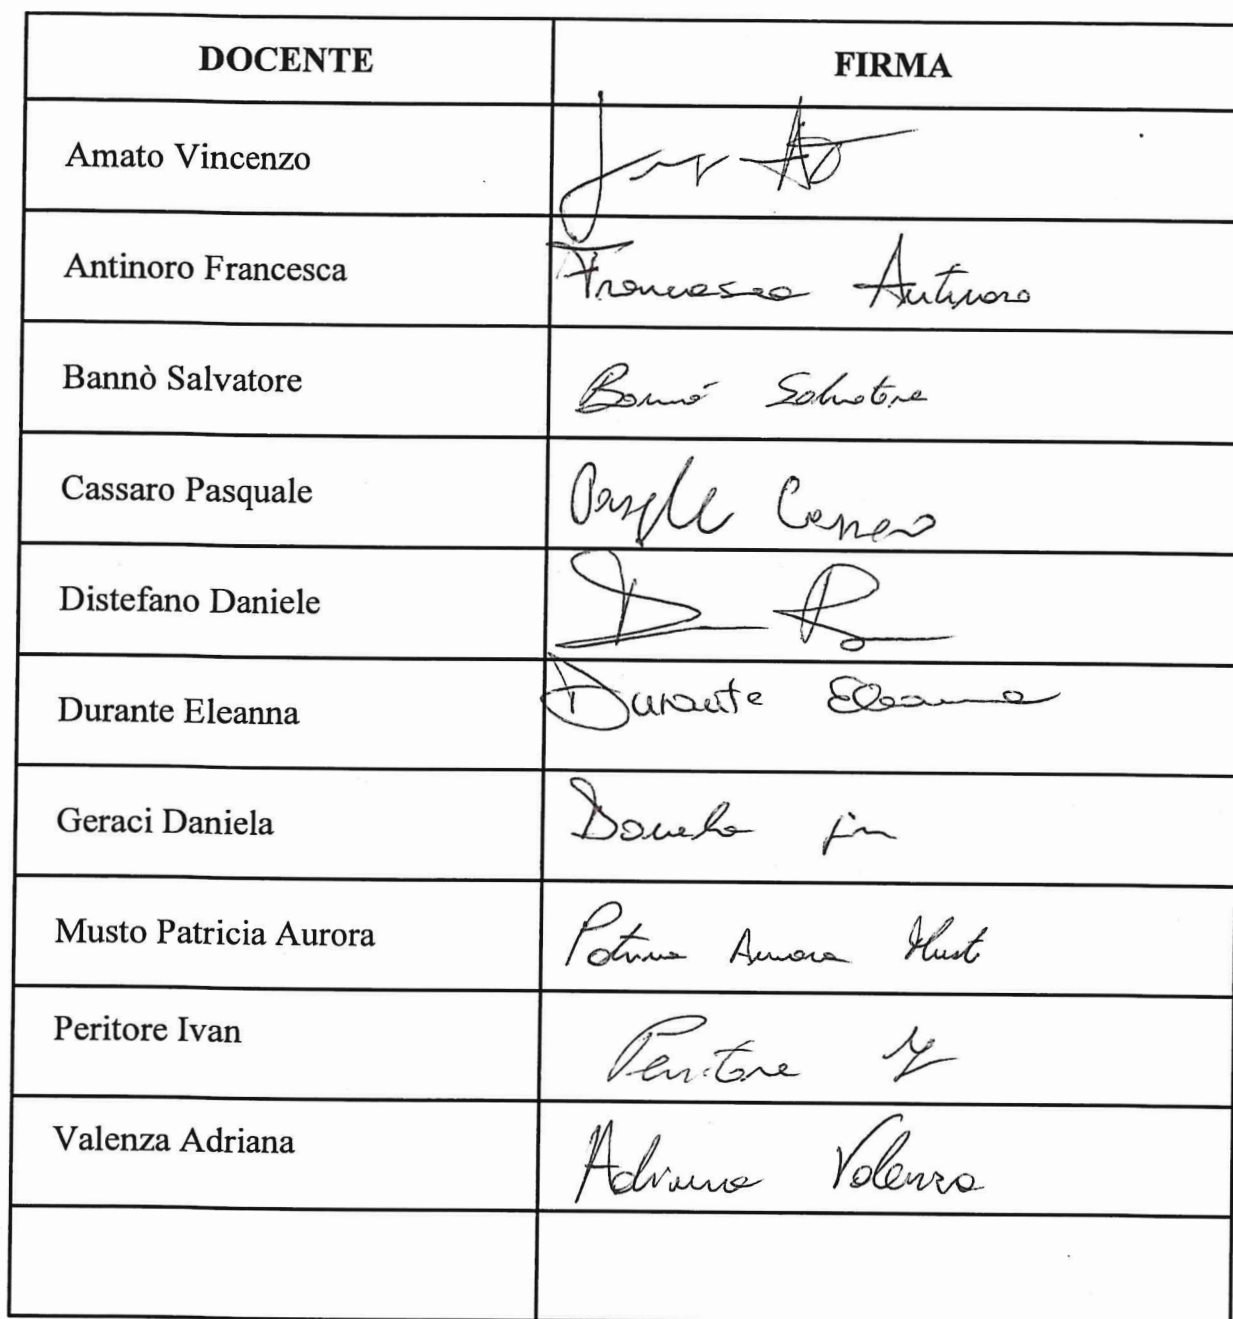 DOCENTE FIRMA
Amato Vincenzo
Antinoro Francesca Francesca Antinoro
Bannò Salvatore Bannò Salvatore
Cassaro Pasquale Pasquale Cassaro
Distefano Daniele
Durante Eleanna Durante Eleanna
Geraci Daniela Daniela
Musto Patricia Aurora Patricia Aurora Musto
Peritore Ivan Peritore
Valenza Adriana Adriana Valenza